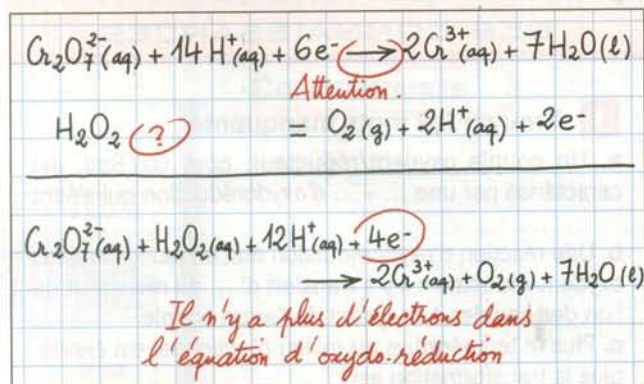 Cr₂O₇²⁻(aq) + 14 H⁺(aq) + 6e⁻ ⟶ 2Cr³⁺(aq) + 7H₂O(l)
Attention.
H₂O₂ (?) = O₂(g) + 2H⁺(aq) + 2e⁻
Cr₂O₇²⁻(aq) + H₂O₂(aq) + 12H⁺(aq) + 4e⁻
⟶ 2Cr³⁺(aq) + O₂(g) + 7H₂O(l)
Il n'y a plus d'électrons dans
l'équation d'oxydo-réduction